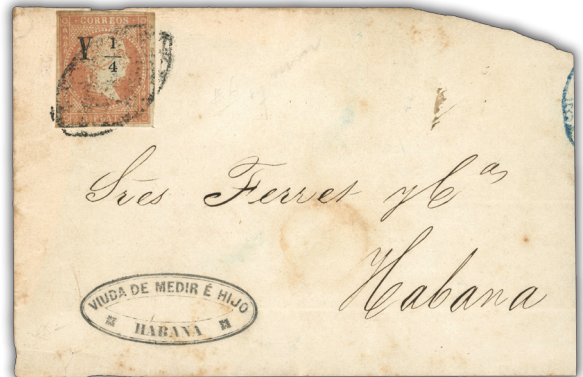 CORREOS
Y 1/4
Sres Ferret y Cas
Habana
VIUDA DE MEDIR É HIJO
HABANA